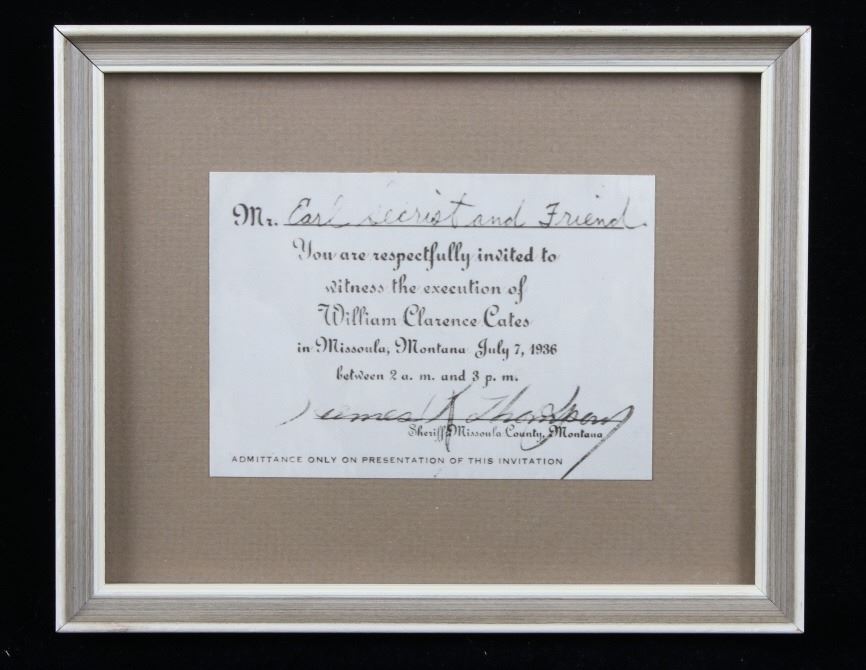 Mr. Earl Secrist and Friend.
You are respectfully invited to
witness the execution of
William Clarence Cates
in Missoula, Montana July 7, 1936
between 2 a. m. and 3 p. m.
James R Thompson
Sheriff Missoula County, Montana
ADMITTANCE ONLY ON PRESENTATION OF THIS INVITATION